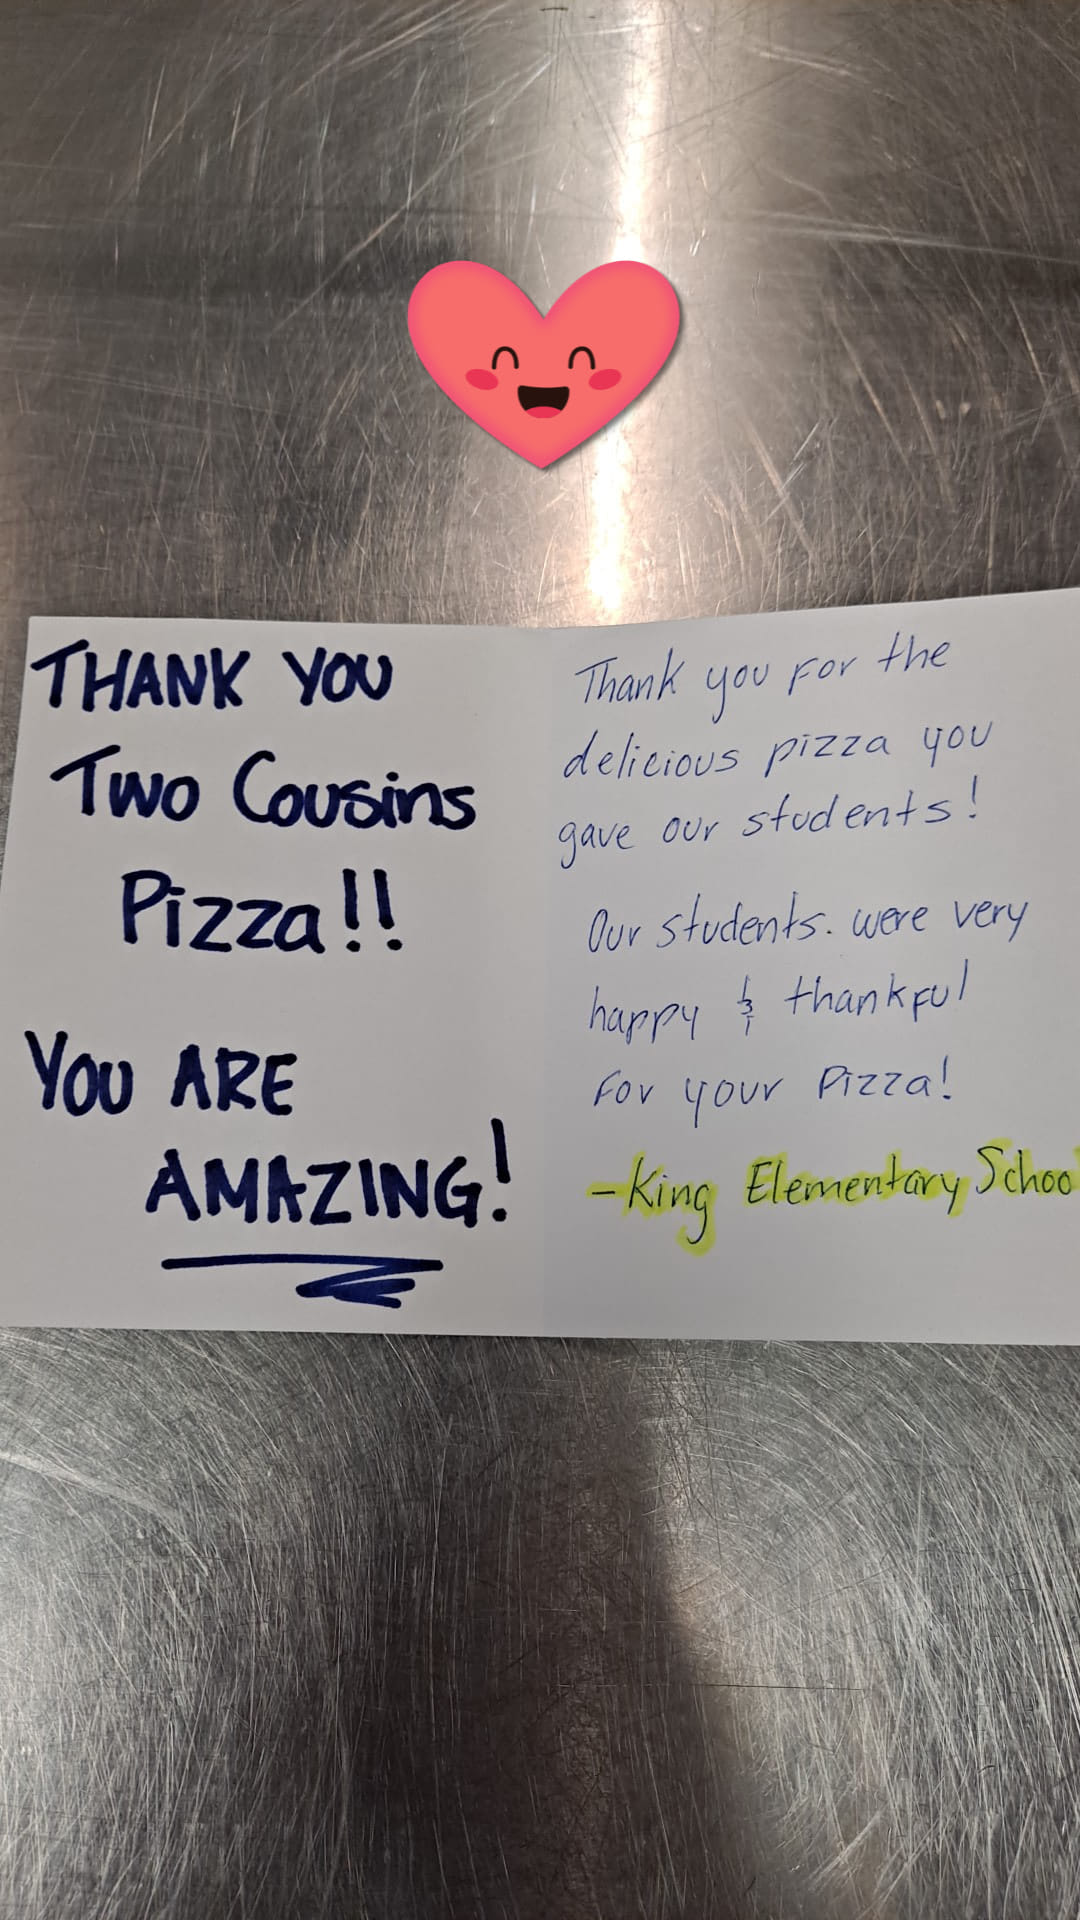 THANK YOU
Two Cousins
Pizza!!
YOU ARE
AMAZING!
Thank you for the
delicious pizza you
gave our students!
Our students. were very
happy & thankful
for your Pizza!
-King Elementary School